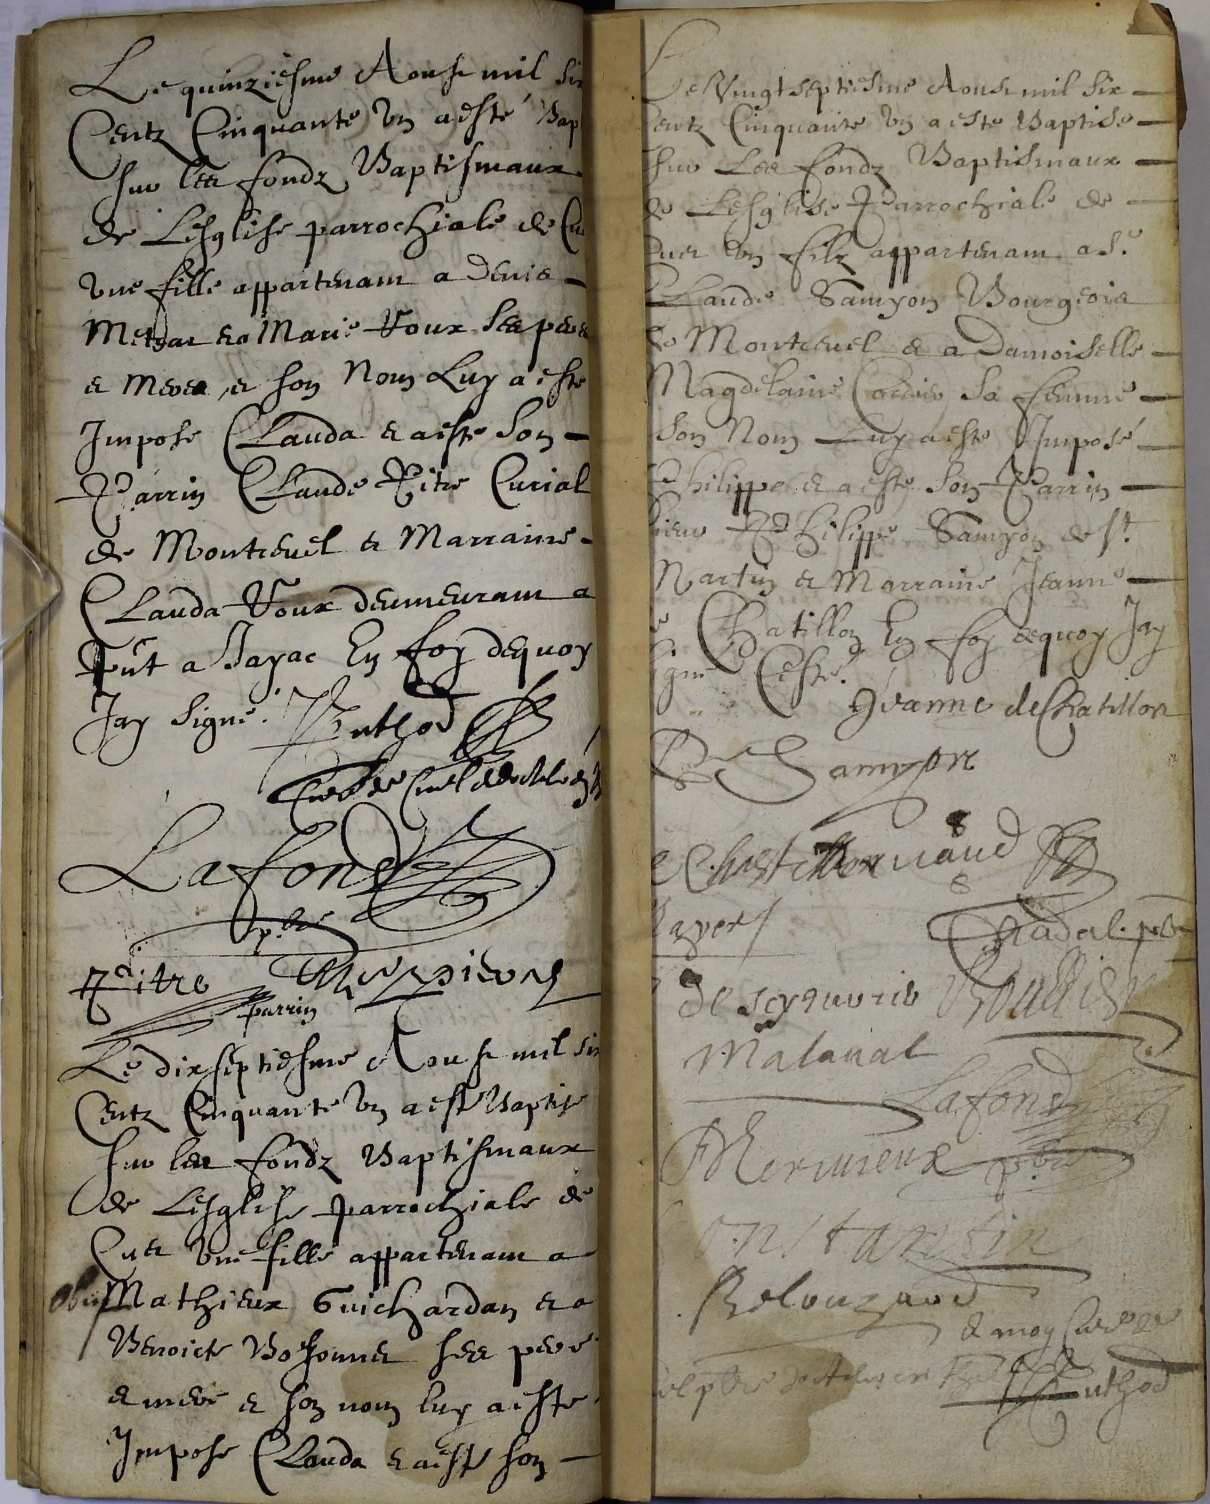 Le quinziesme Aoust mil six
Centz Cinquante Un a esté Bap
sur les fondz Baptismaux
de Lesglise parrochiale de Cu
Une fille appartenant a Denis
et Marie Roux ses pere
et mere, et son Nom Luy a esté
Imposé Clauda et a esté Son
Parrin Claude Pitre Curial
de Montrevel et Marraine
Clauda Roux demeurant a
a Jayac En foy dequoy
Jay Signé. Buthod
Lafond
pbre
Pitre
parrin
Le dixseptiesme Aoust mil six
Centz Cinquante Un a esté Baptise
sur les fondz Baptismaux
de Lesglise parrochiale de
Cuet Une fille appartenant a
Mathieux Guichardan et a
Benoicte Bosonnet ses pere
et mere et son nom luy a esté
Imposé Clauda et a esté son
Le Vingt septiesme Aoust mil six
Centz Cinquante Un a esté Baptise
sur Les fondz Baptismaux
de Lesglise Parrochiale de
Cuet Un filz appartenant a Sr
Claude Samyon Bourgeois
de Montrevel et a Damoiselle
Magdelaine Sa femme
Son Nom Luy a esté Imposé
Philippe et a esté Son Parrin
sieur Philippe Samyon de St
Martin et Marraine Jeanne
de Chatillon En foy dequoy Jay
signé Ceste.
Jeanne de Chatillon
Samyon
de Chastillon
Nadal pbre
de Seyturier Boullier
Malaval
Lafond
Mermieux pbre
Constantin
et moy Curé
Buthod